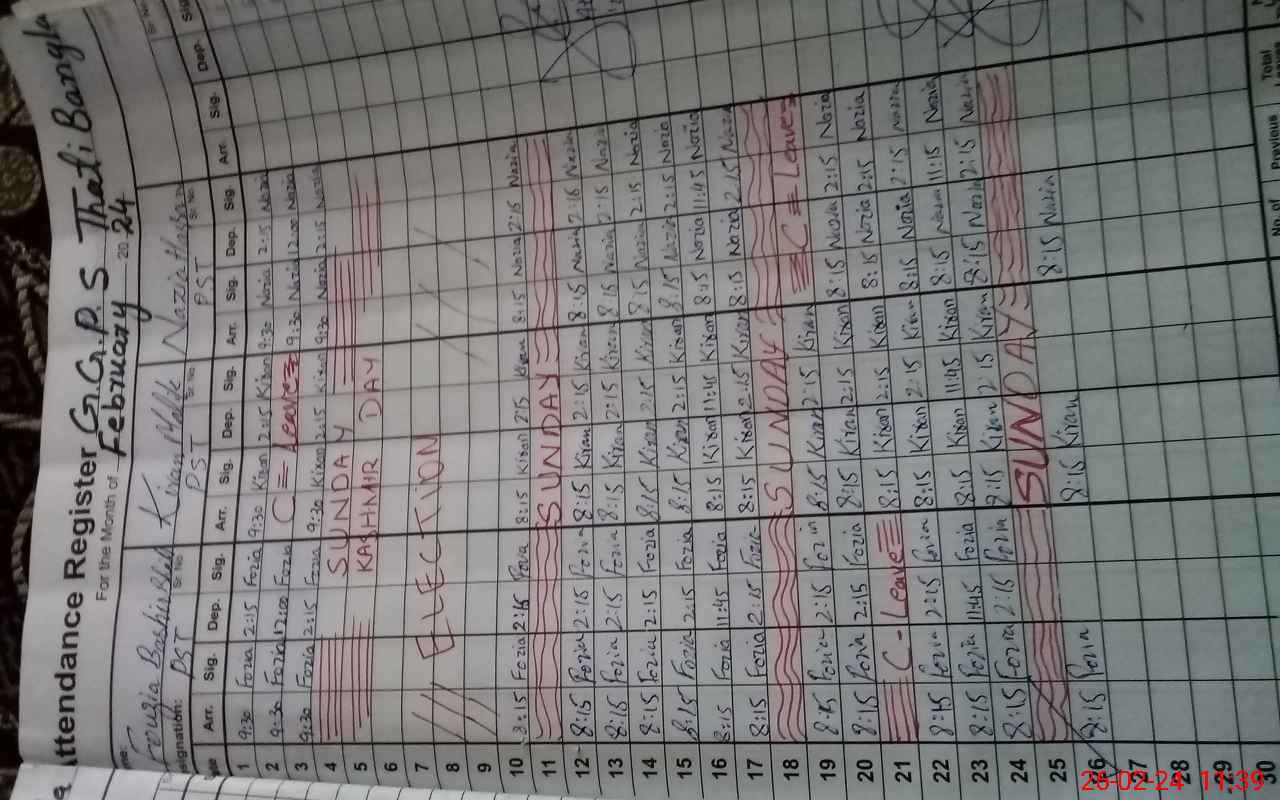 Attendance Register G.G.P.S Thati Bangla
For the Month of February 2024
Fouzia Bashir Kiran Malik Nazia Hassan
signation: PST Sr No PST Sr No PST Sr No
Arr. Sig. Dep. Sig. Arr. Sig. Dep. Sig. Arr. Sig. Dep. Sig. Arr. Sig. Dep. Sig.
1 9:30 Fozia 2:15 Fozia 9:30 Kiran 2:15 Kiran 9:30 Nazia 2:15 Nazia
2 9:30 Fozia 12:00 Fozia C = Leave 9:30 Nazia 12:00 Nazia
3 9:30 Fozia 2:15 Fozia 9:30 Kiran 2:15 Kiran 9:30 Nazia 2:15 Nazia
4 SUNDAY
5 KASHMIR DAY
6
7 ELECTION
8
9
10 8:15 Fozia 2:15 Fozia 8:15 Kiran 2:15 Kiran 8:15 Nozia 2:15 Nazia
11 SUNDAY
12 8:15 Fozia 2:15 Fozia 8:15 Kiran 2:15 Kiran 8:15 Nazia 2:15 Nazia
13 8:15 Fozia 2:15 Fozia 8:15 Kiran 2:15 Kiran 8:15 Nazia 2:15 Nazia
14 8:15 Fozia 2:15 Fozia 8:15 Kiran 2:15 Kiran 8:15 Nazia 2:15 Nozia
15 8:15 Fozia 2:15 Fozia 8:15 Kiran 2:15 Kiran 8:15 Nazia 2:15 Nozia
16 8:15 Fozia 11:45 Fozia 8:15 Kiran 11:45 Kiran 8:15 Nozia 11:45 Nozia
17 8:15 Fozia 2:15 Fozia 8:15 Kiran 2:15 Kiran 8:15 Nozia 2:15 Nazia
18 SUNDAY
19 8:15 Fozia 2:15 Fozia 8:15 Kiran 2:15 Kiran C = Leave
20 8:15 Fozia 2:15 Fozia 8:15 Kiran 2:15 Kiran 8:15 Nozia 2:15 Nozia
21 C - Leave 8:15 Kiran 2:15 Kiran 8:15 Nozia 2:15 Nozia
22 8:15 Fozia 2:15 Fozia 8:15 Kiran 2:15 Kiran 8:15 Nozia 2:15 Nozia
23 8:15 Fozia 11:45 Fozia 8:15 Kiran 11:45 Kiran 8:15 Nazia 11:15 Nozia
24 8:15 Fozia 2:15 Fozia 8:15 Kiran 2:15 Kiran 8:15 Nazia 2:15 Nazia
25 SUNDAY
26 8:15 Fozia 8:15 Kiran 8:15 Nazia
27
28
29
30
No. of Previous Total
26-02-24 11:39